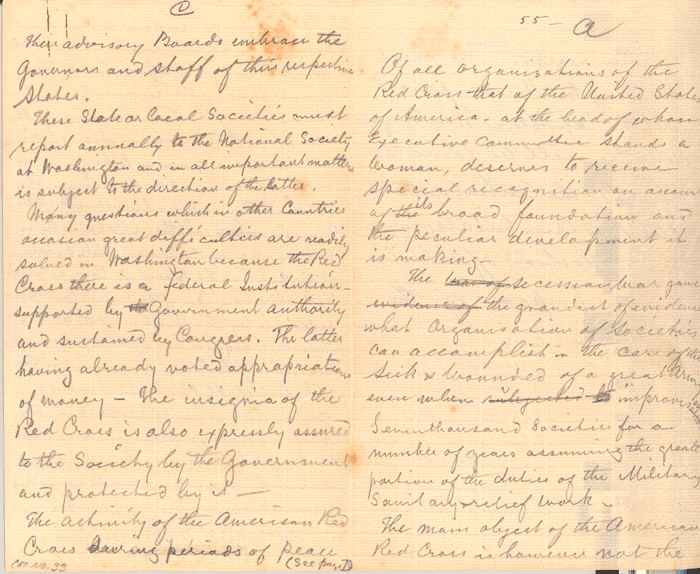 C
Their advisory Boards embrace the
Governors and staff of their respective
States.
These State or Local Societies must
report annually to the National Society
at Washington and in all important matters
is subject to the direction of the latter.
Many questions which in other Countries
occasion great difficulties are readily
solved in Washington because the Red
Cross there is a federal Institution -
supported by the Government authority
and sustained by Congress. The latter
having already voted appropriations
of money — The insignia of the
Red Cross is also expressly assured
to the Society by the Government
and protected by it —
The activity of the American Red
Cross during periods of peace
(See page D)
Cat. No. 33
55 - A
Of all organizations of the
Red Cross that of the United States
of America - at the head of whose
Executive Committee stands a
woman, deserves to receive
special recognition on account
of the its broad foundation and
the peculiar development it
is making -
The war of secession war gave
evidence of the grandest of evidence
what organisation of societies
can accomplish in the care of the
sick & wounded of a great Army
even when subjected to improvised
Seven thousand Societies for a
number of years assuming the greater
portion of the duties of the Military
Sanitary relief work -
The main object of the American
Red Cross is however not the